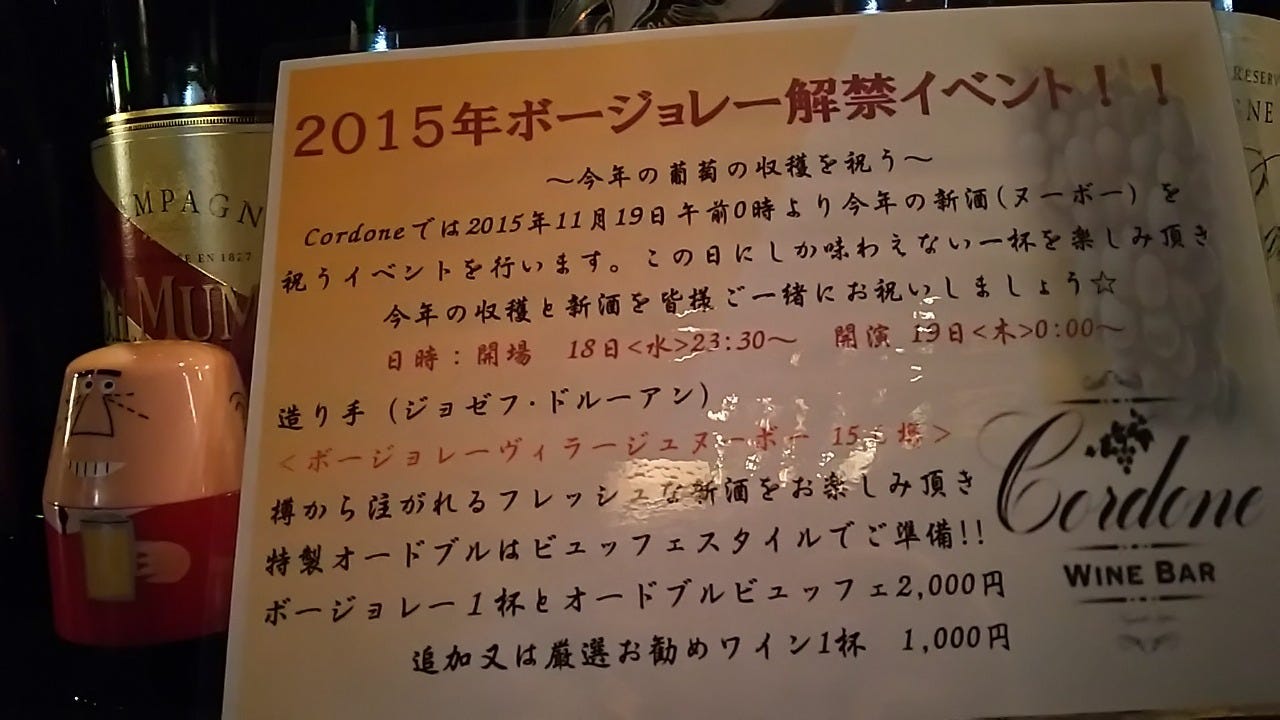 2015年ボージョレー解禁イベント！！
～今年の葡萄の収穫を祝う～
Cordoneでは2015年11月19日午前0時より今年の新酒(ヌーボー)を
祝うイベントを行います。この日にしか味わえない一杯を楽しみ頂き
今年の収穫と新酒を皆様ご一緒にお祝いしましょう☆
日時：開場 18日<水>23:30～ 開演 19日<木>0:00～
造り手（ジョゼフ・ドルーアン）
<ボージョレーヴィラージュヌーボー 15 樽>
樽から注がれるフレッシュな新酒をお楽しみ頂き
特製オードブルはビュッフェスタイルでご準備!!
ボージョレー1杯とオードブルビュッフェ2,000円
追加又は厳選お勧めワイン1杯 1,000円
Cordone
WINE BAR
MPAGN
EN 1827
MUM
RESERV
NE